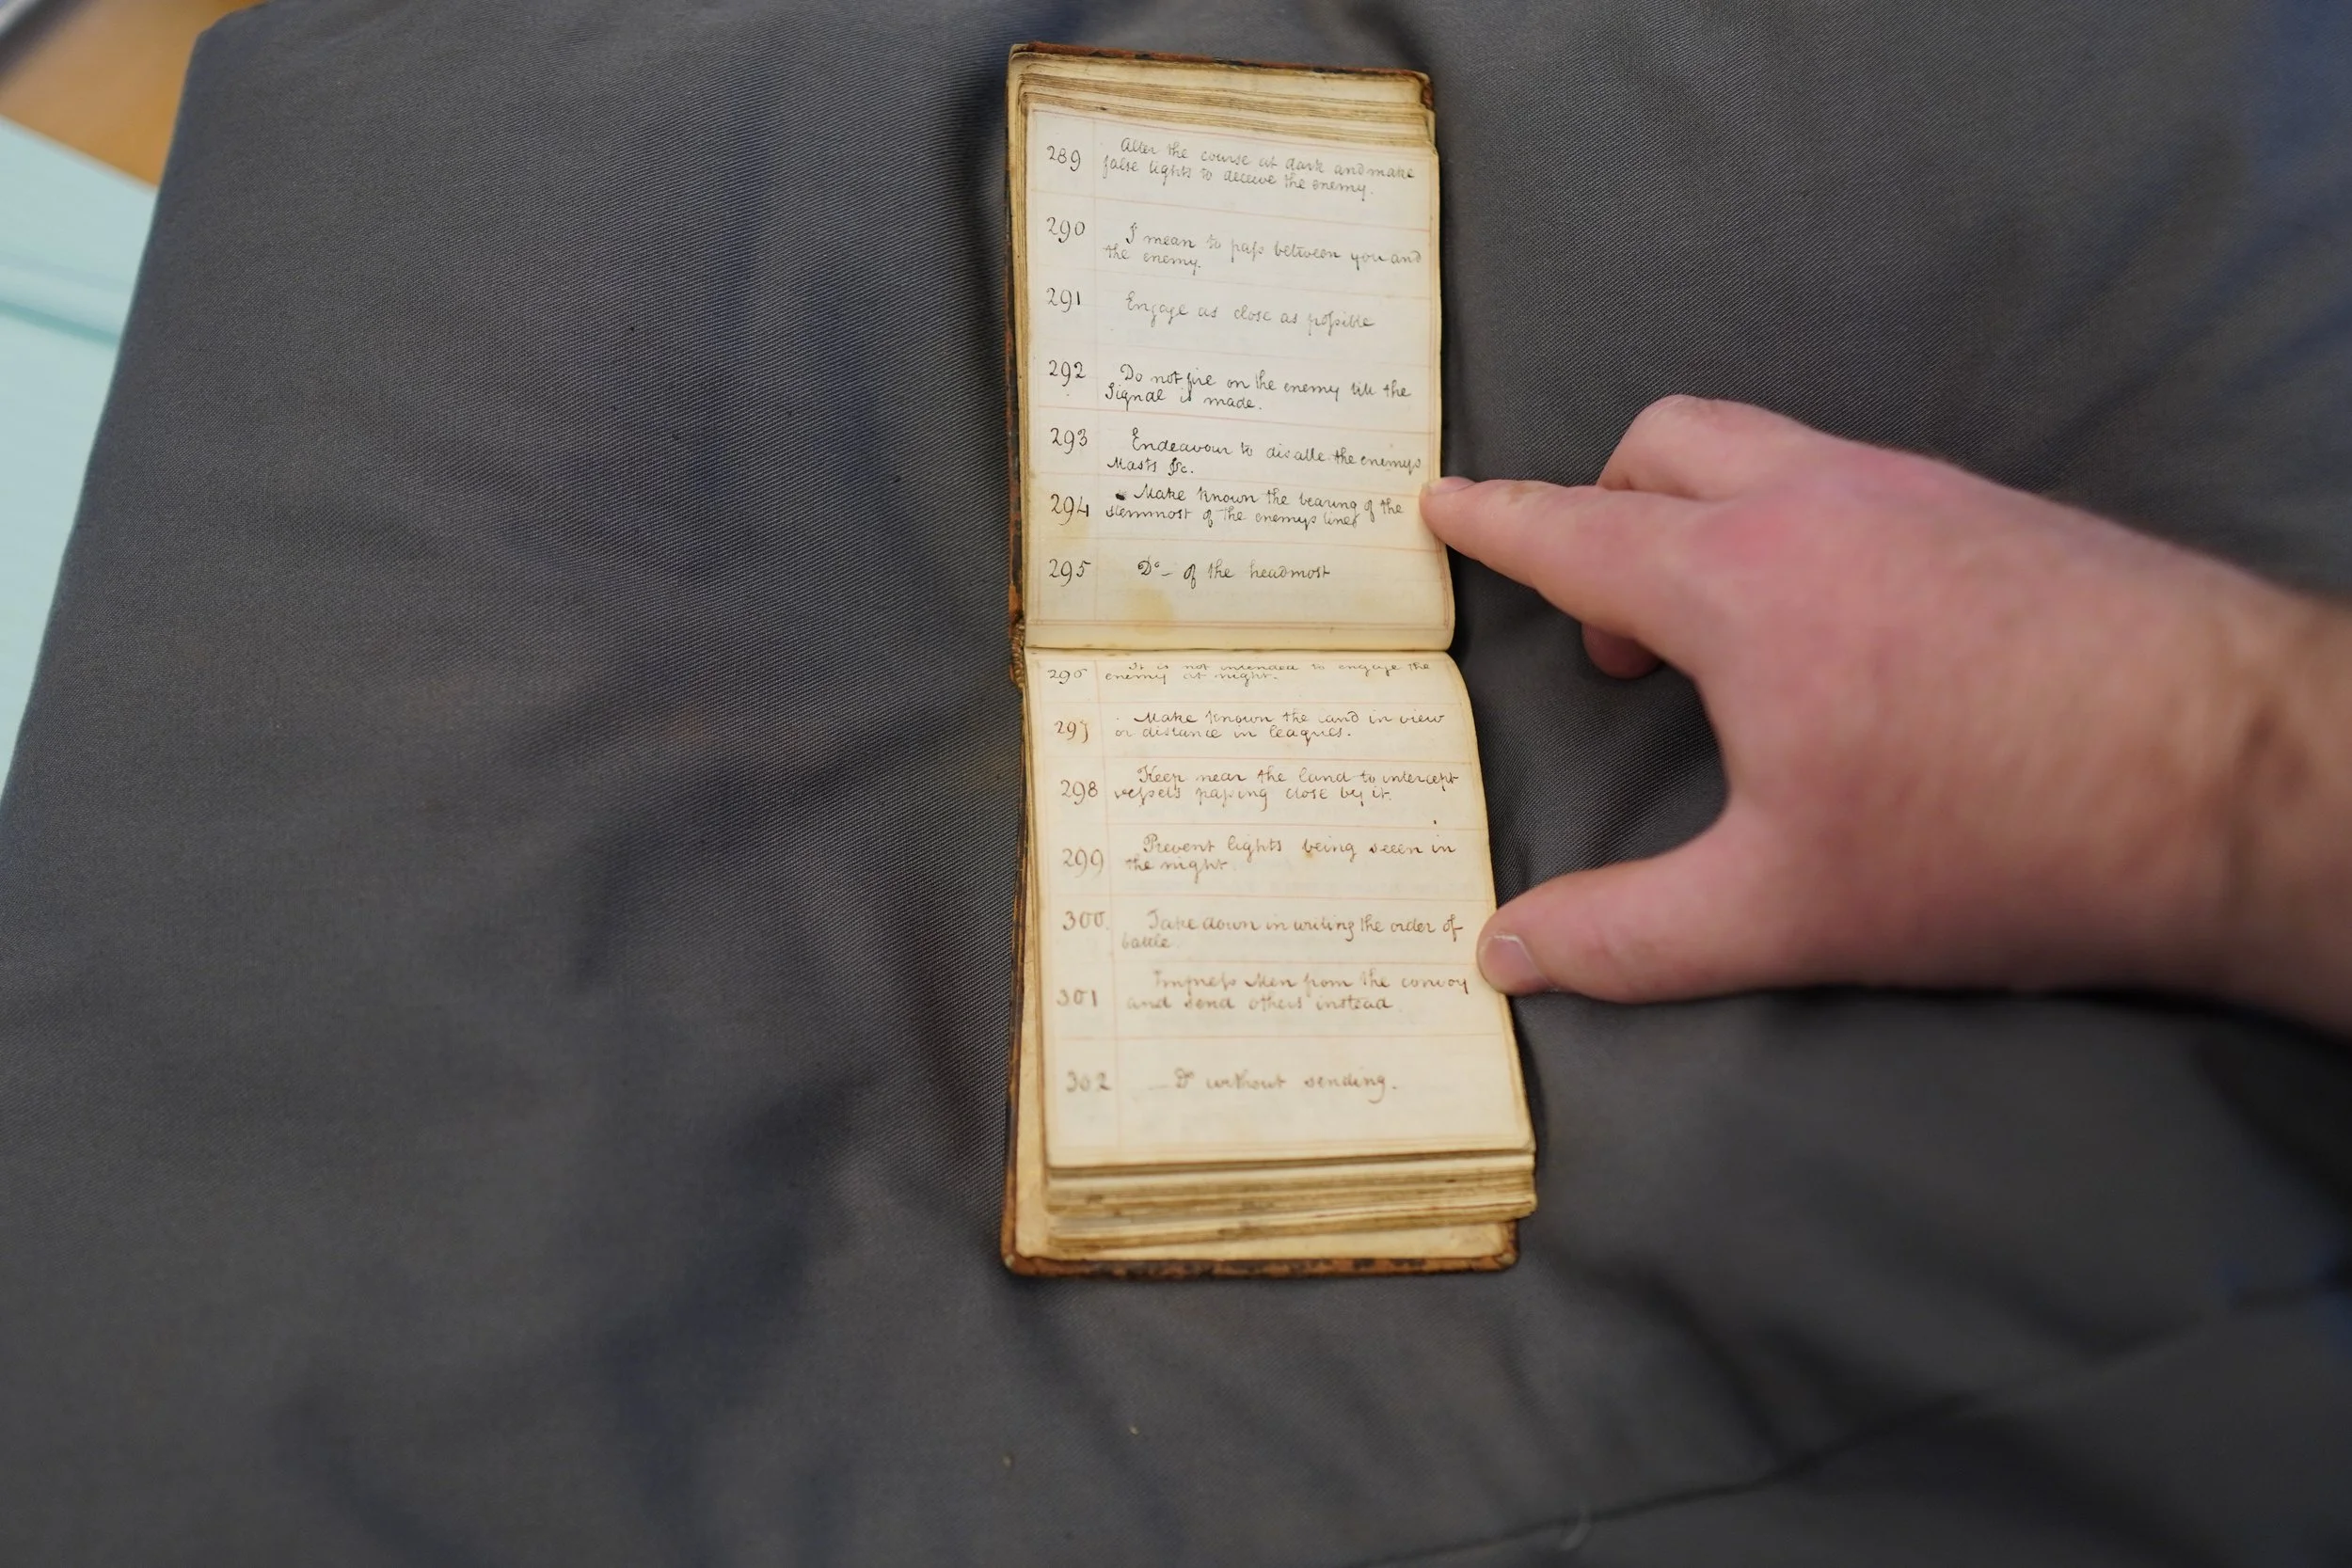 289 Alter the course at dark and make
false lights to deceive the enemy.
290 I mean to paſs between you and
the enemy.
291 Engage as close as poſsible
292 Do not fire on the enemy till the
Signal is made.
293 Endeavour to disable the enemys
Masts &c.
294 Make known the bearing of the
sternmost of the enemys line
295 Do- of the headmost
296 It is not intended to engage the
enemy at night.
297 Make known the land in view
or distance in leagues.
298 Keep near the land to intercept
veſsels paſsing close by it.
299 Prevent lights being seeen in
the night
300. Take down in writing the order of
battle
301 Impreſs Men from the convoy
and send others instead.
302 - Do without sending.